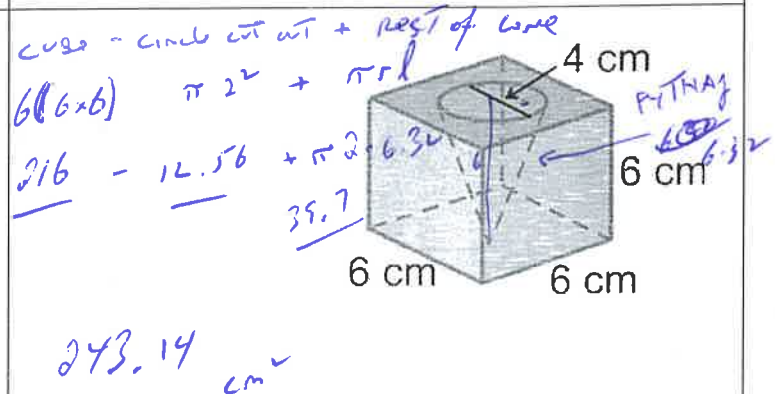 cube - circle cut out + rest of cone
6(6×6) π 2² + π r l
216 - 12.56 + π 2 · 6.32
39.7
4 cm
PYTHAG
6.32
6
6 cm
6 cm
6 cm
243.14 cm²